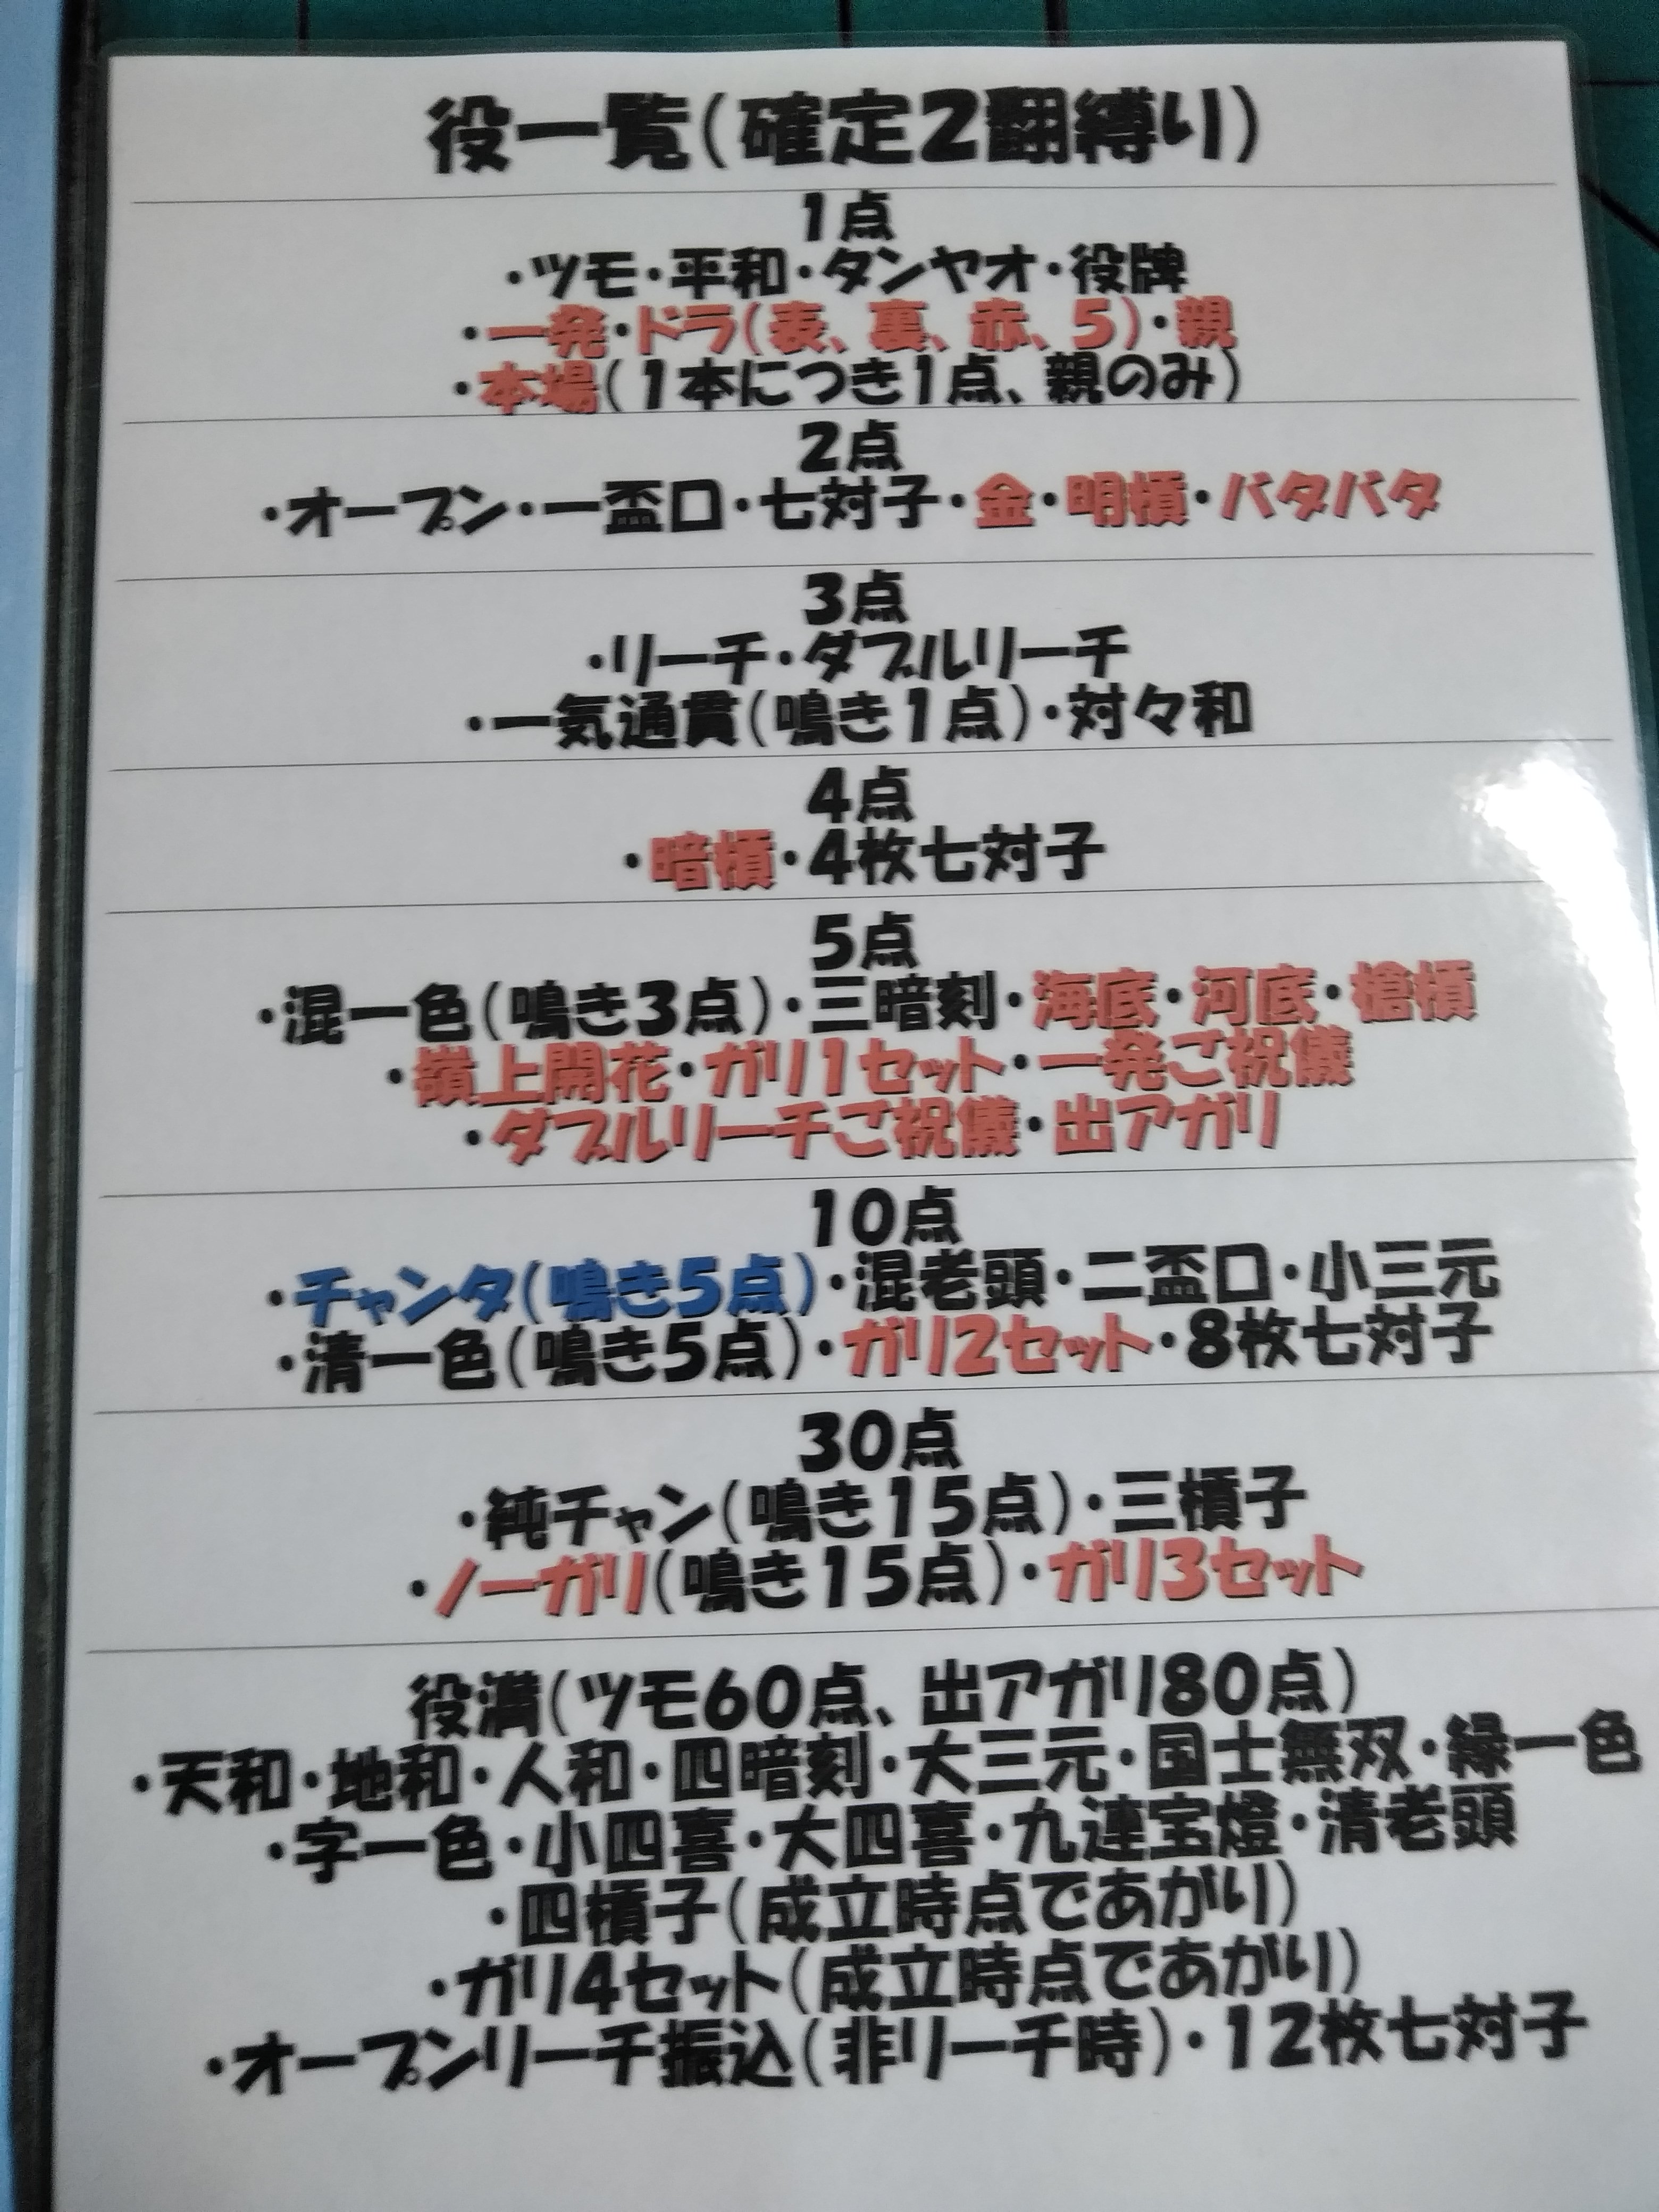 役一覧(確定2翻縛り)
1点
・ツモ・平和・タンヤオ・役牌
・一発・ドラ(表、裏、赤、5)・親
・本場(1本につき1点、親のみ)
2点
・オープン・一盃口・七対子・金・明槓・バタバタ
3点
・リーチ・ダブルリーチ
・一気通貫(鳴き1点)・対々和
4点
・暗槓・4枚七対子
5点
・混一色(鳴き3点)・三暗刻・海底・河底・槍槓
・嶺上開花・ガリ1セット・一発ご祝儀
・ダブルリーチご祝儀・出アガリ
10点
・チャンタ(鳴き5点)・混老頭・二盃口・小三元
・清一色(鳴き5点)・ガリ2セット・8枚七対子
30点
・純チャン(鳴き15点)・三槓子
・ノーガリ(鳴き15点)・ガリ3セット
役満(ツモ60点、出アガリ80点)
・天和・地和・人和・四暗刻・大三元・国士無双・緑一色
・字一色・小四喜・大四喜・九連宝燈・清老頭
・四槓子(成立時点であがり)
・ガリ4セット(成立時点であがり)
・オープンリーチ振込(非リーチ時)・12枚七対子